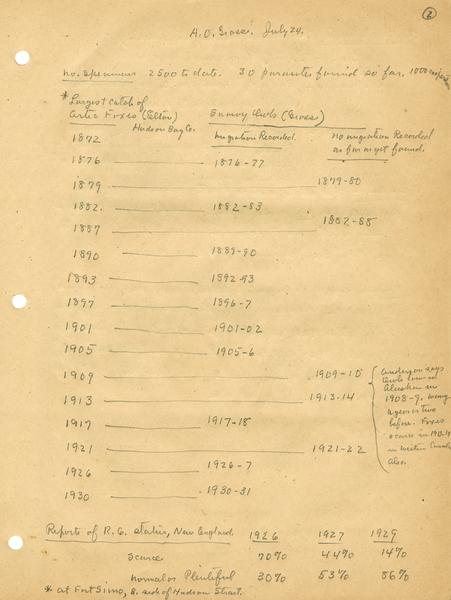 2
A.O. Gross. July 24.
No. specimens 2500 to date. 30 parasites found so far, 1000
* Largest Catch of
Artic Foxes (Elton) Snowy Owls (Gross)
Hudson Bay Co. migration Recorded. No migration Recorded
as far as yet found.
1872
1876 1876-77
1879 1879-80
1882. 1882-83
1887 1887-88
1890 1889-90
1893 1892-93
1897 1896-7
1901 1901-02
1905 1905-6
1909 1909-10
1913 1913-14
Anderson says
Owls low in
Alaskan in
1908-9. many
a year or two
before. Foxes
scarce in
in Western Canada
also.
1917 1917-18
1921 1921-22
1926 1926-7
1930 1930-31
Reports of R.G. status, New England. 1926 1927 1929
Scarce 70% 44% 14%
normal or Plentiful 30% 53% 86%
* at Fort Simo, S. side of Hudson Strait.